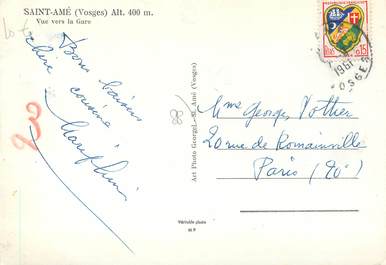 SAINT-AMÉ (Vosges) Alt. 400 m.
Vue vers la Gare
Bons baisers
chère cousine
Art Photo George, St. Amé (Vosges)
1961
VOSGES
0,15
Mme Georges Vottier
20 rue de Romainville
Paris (20e)
Véritable photo